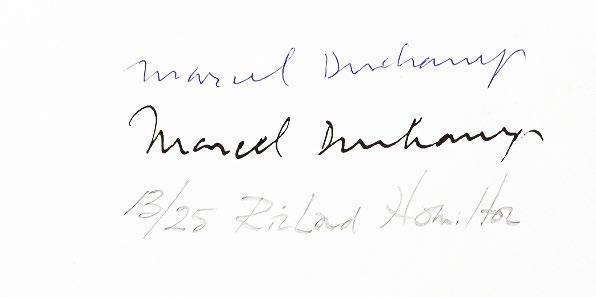 Marcel Duchamp
Marcel Duchamp
13/25 Richard Hamilton